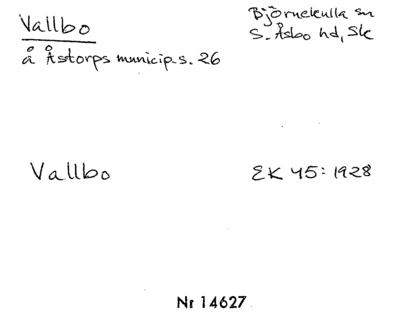 Vallbo
Björnekulla sn
S. Åsbo hd, Sk
å Åstorps municip.s. 26
Vallbo
EK 45: 1928
Nr 14627